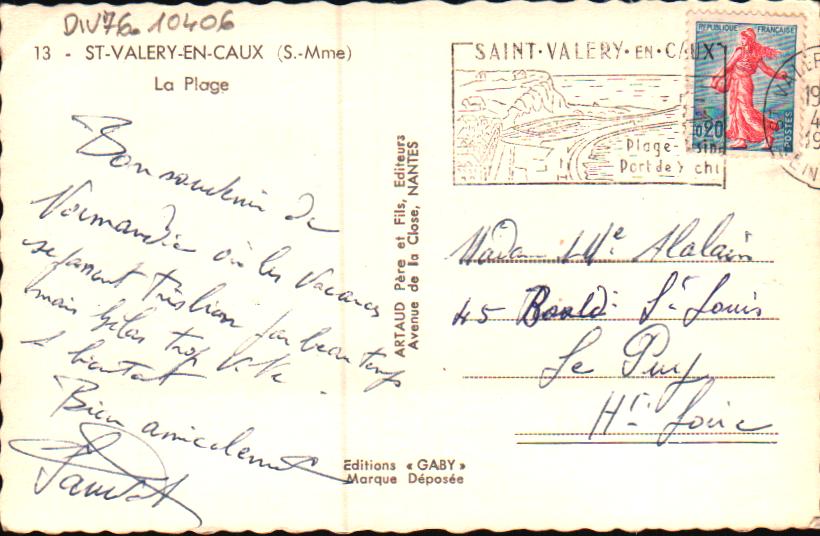 DIV76. 10406
13 - ST-VALERY-EN-CAUX (S.-Mme)
La Plage
Bon souvenir de
Normandie où les vacances
se passent très bien par beau temps
mais hélas trop vite.
A bientôt
Bien amicalement
ARTAUD Père et Fils, Editeurs
Avenue de la Close, NANTES
Editions « GABY »
Marque Déposée
SAINT-VALERY-EN-CAUX
Plage
Port de
REPUBLIQUE FRANÇAISE
0,20
POSTES
Madame
45 Boul.d St Louis
Le Puy
Hte Loire